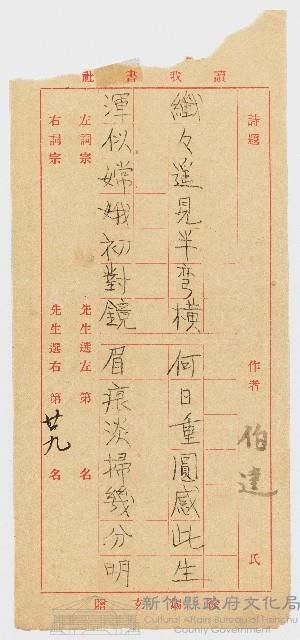 讀我書社
詩題 作者 伯達 氏
纖々遙見半彎橫 何日重圓感此生
渾似嫦娥初對鏡 眉痕淡掃幾分明
左詞宗 先生選左第 名
右詞宗 先生選右第 廿九 名
贈
新竹縣政府文化局
Cultural Affairs Bureau of Hsinchu
County Government